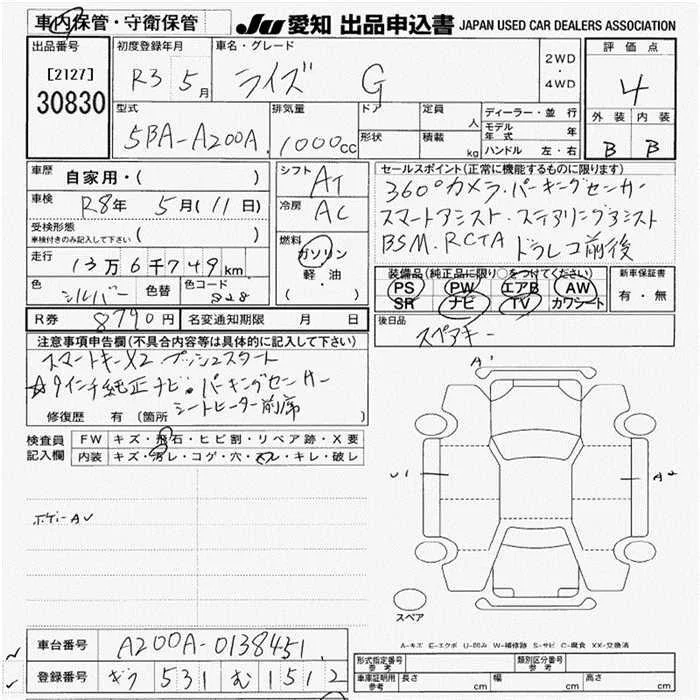 車内保管・守衛保管 JU 愛知 出品申込書 JAPAN USED CAR DEALERS ASSOCIATION
出品番号 初度登録年月 車名・グレード 2WD・4WD 評価点
[2127] R3 5月 ライズ G 4
30830
型式 排気量 ドア 定員 人 ディーラー・並行 外装 内装
5BA-A200A 1000cc 形状 積載 kg モデル年式 年 B B
ハンドル 左・右
車歴 自家用・( ) シフト AT セールスポイント(正常に機能するものに限ります)
車検 R8年 5月(11日) 冷房 AC 360°カメラ・パーキングセンサー
受検形態 ( ) スマートアシスト・ステアリングアシスト
車検付きのみ記入して下さい 燃料 BSM.RCTA ドラレコ前後
走行 13万6千749km ガソリン
軽・油
( )
装備品(純正品に限り○をつけてください) 新車保証書
色 シルバー 色替 色コード PS PW エアB AW 有・無
SR ナビ TV カワシート
R券 8790円 名変通知期限 月 日 後日品
スペアキー
注意事項申告欄(不具合内容等は具体的に記入して下さい)
スマートキーX2 プッシュスタート
☆9インチ純正ナビ・パーキングセンサー
シートヒーター前席
修復歴 有(箇所
A1
検査員記入欄 FW キズ・飛石・ヒビ割・リペア跡・X要
内装 キズ・汚レ・コゲ・穴・スレ・キレ・破レ
U1 A2
スペア
A-キズ E-エクボ U-凹み W-補修跡 S-サビ C-腐食 XX-交換済
車台番号 A200A-0138451
登録番号 ギフ 531 む 1512
形式指定番号 参考 類別区分番号 参考
車庫証明用 参考 長さ cm 幅 cm 高さ cm